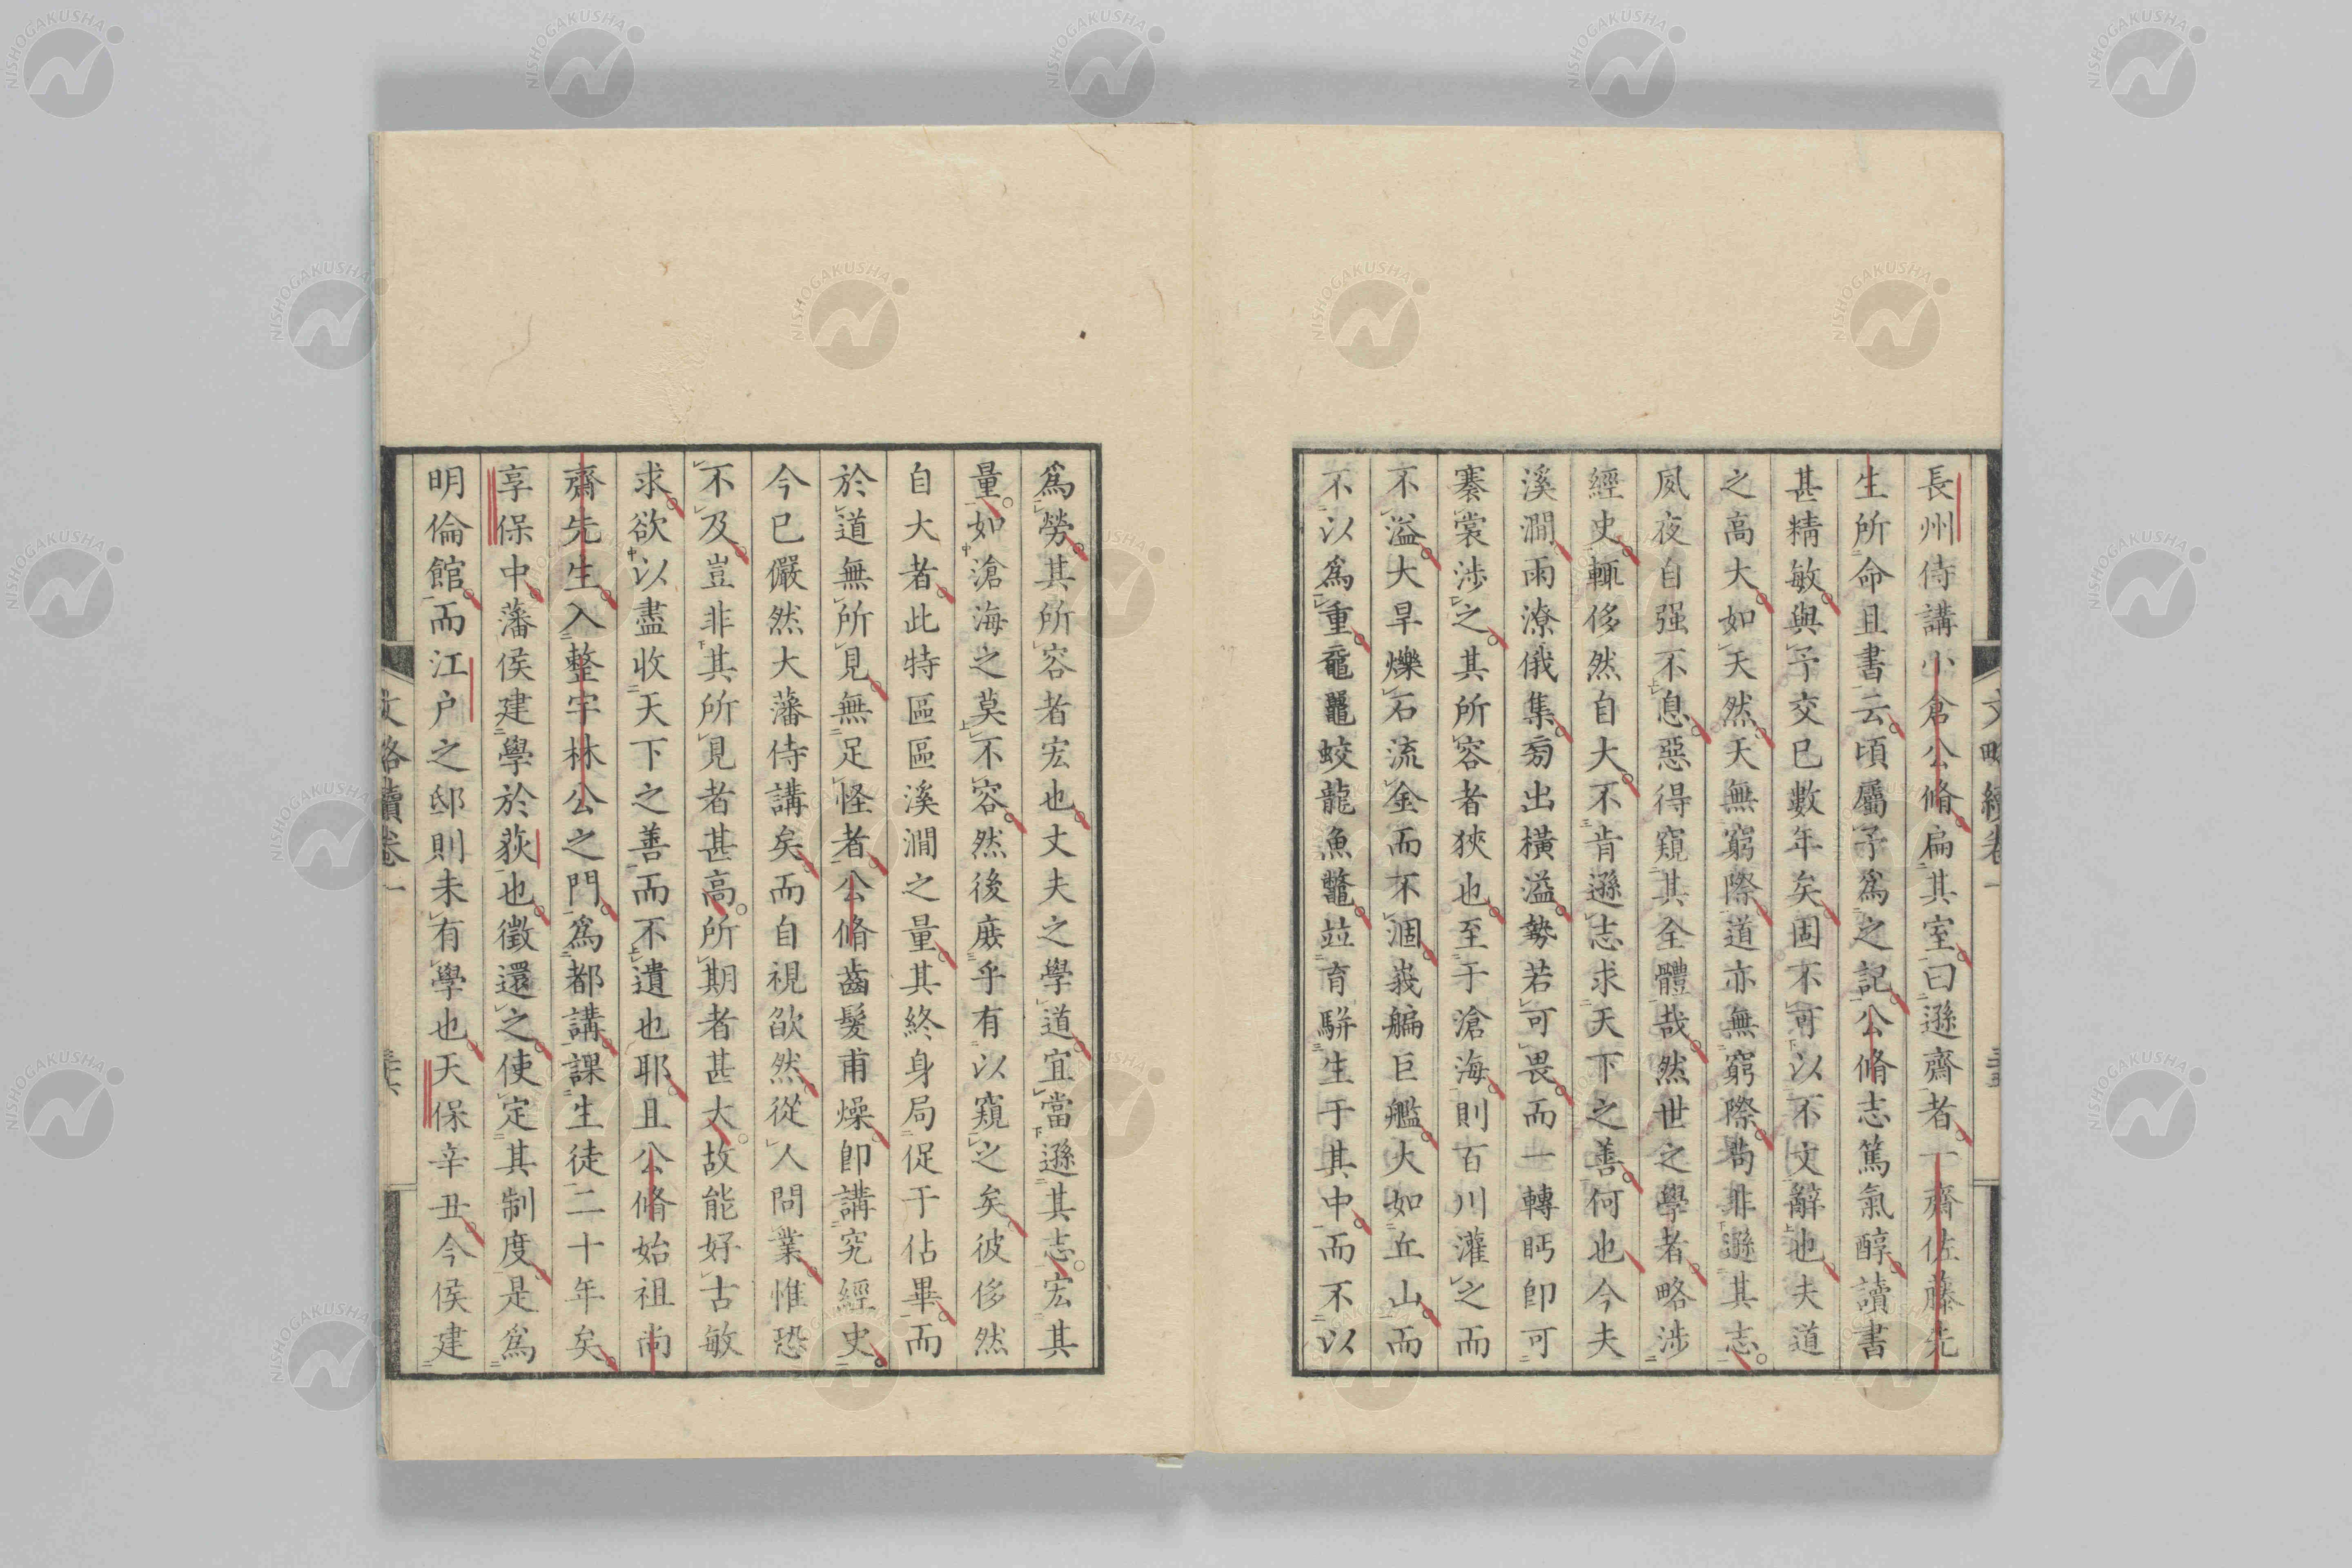 長州侍講小倉公脩扁其室曰遜齋者一齋佐藤先
生所命且書云頃屬予爲之記公脩志篤氣醇讀書
甚精敏與予交已數年矣固不可以不文辭也夫道
之高大如天然天無窮際道亦無窮際苟非遜其志
夙夜自强不息惡得窺其全體哉然世之學者略涉
經史輒侈然自大不肯遜志求天下之善何也今夫
溪澗雨潦俄集匇出橫溢勢若可畏而一轉眄卽可
褰裳涉之其所容者狹也至于滄海則百川灌之而
不溢大旱爍石流金而不涸峩艑巨艦大如丘山而
不以爲重黿鼉蛟龍魚鼈竝育駢生于其中而不以
爲勞其所容者宏也丈夫之學道宜當遜其志宏其
量如滄海之莫不容然後庶乎有以窺之矣彼侈然
自大者此特區區溪澗之量其終身局促于佔畢而
於道無所見無足怪者公脩齒髮甫燥卽講究經史
今已儼然大藩侍講矣而自視欿然從人問業惟恐
不及豈非其所見者甚高所期者甚大故能好古敏
求欲以盡收天下之善而不遺也耶且公脩始祖尚
齋先生入整宇林公之門爲都講課生徒二十年矣
享保中藩侯建學於萩也徵還之使定其制度是爲
明倫館而江戶之邸則未有學也天保辛丑今侯建
NISHOGAKUSHA